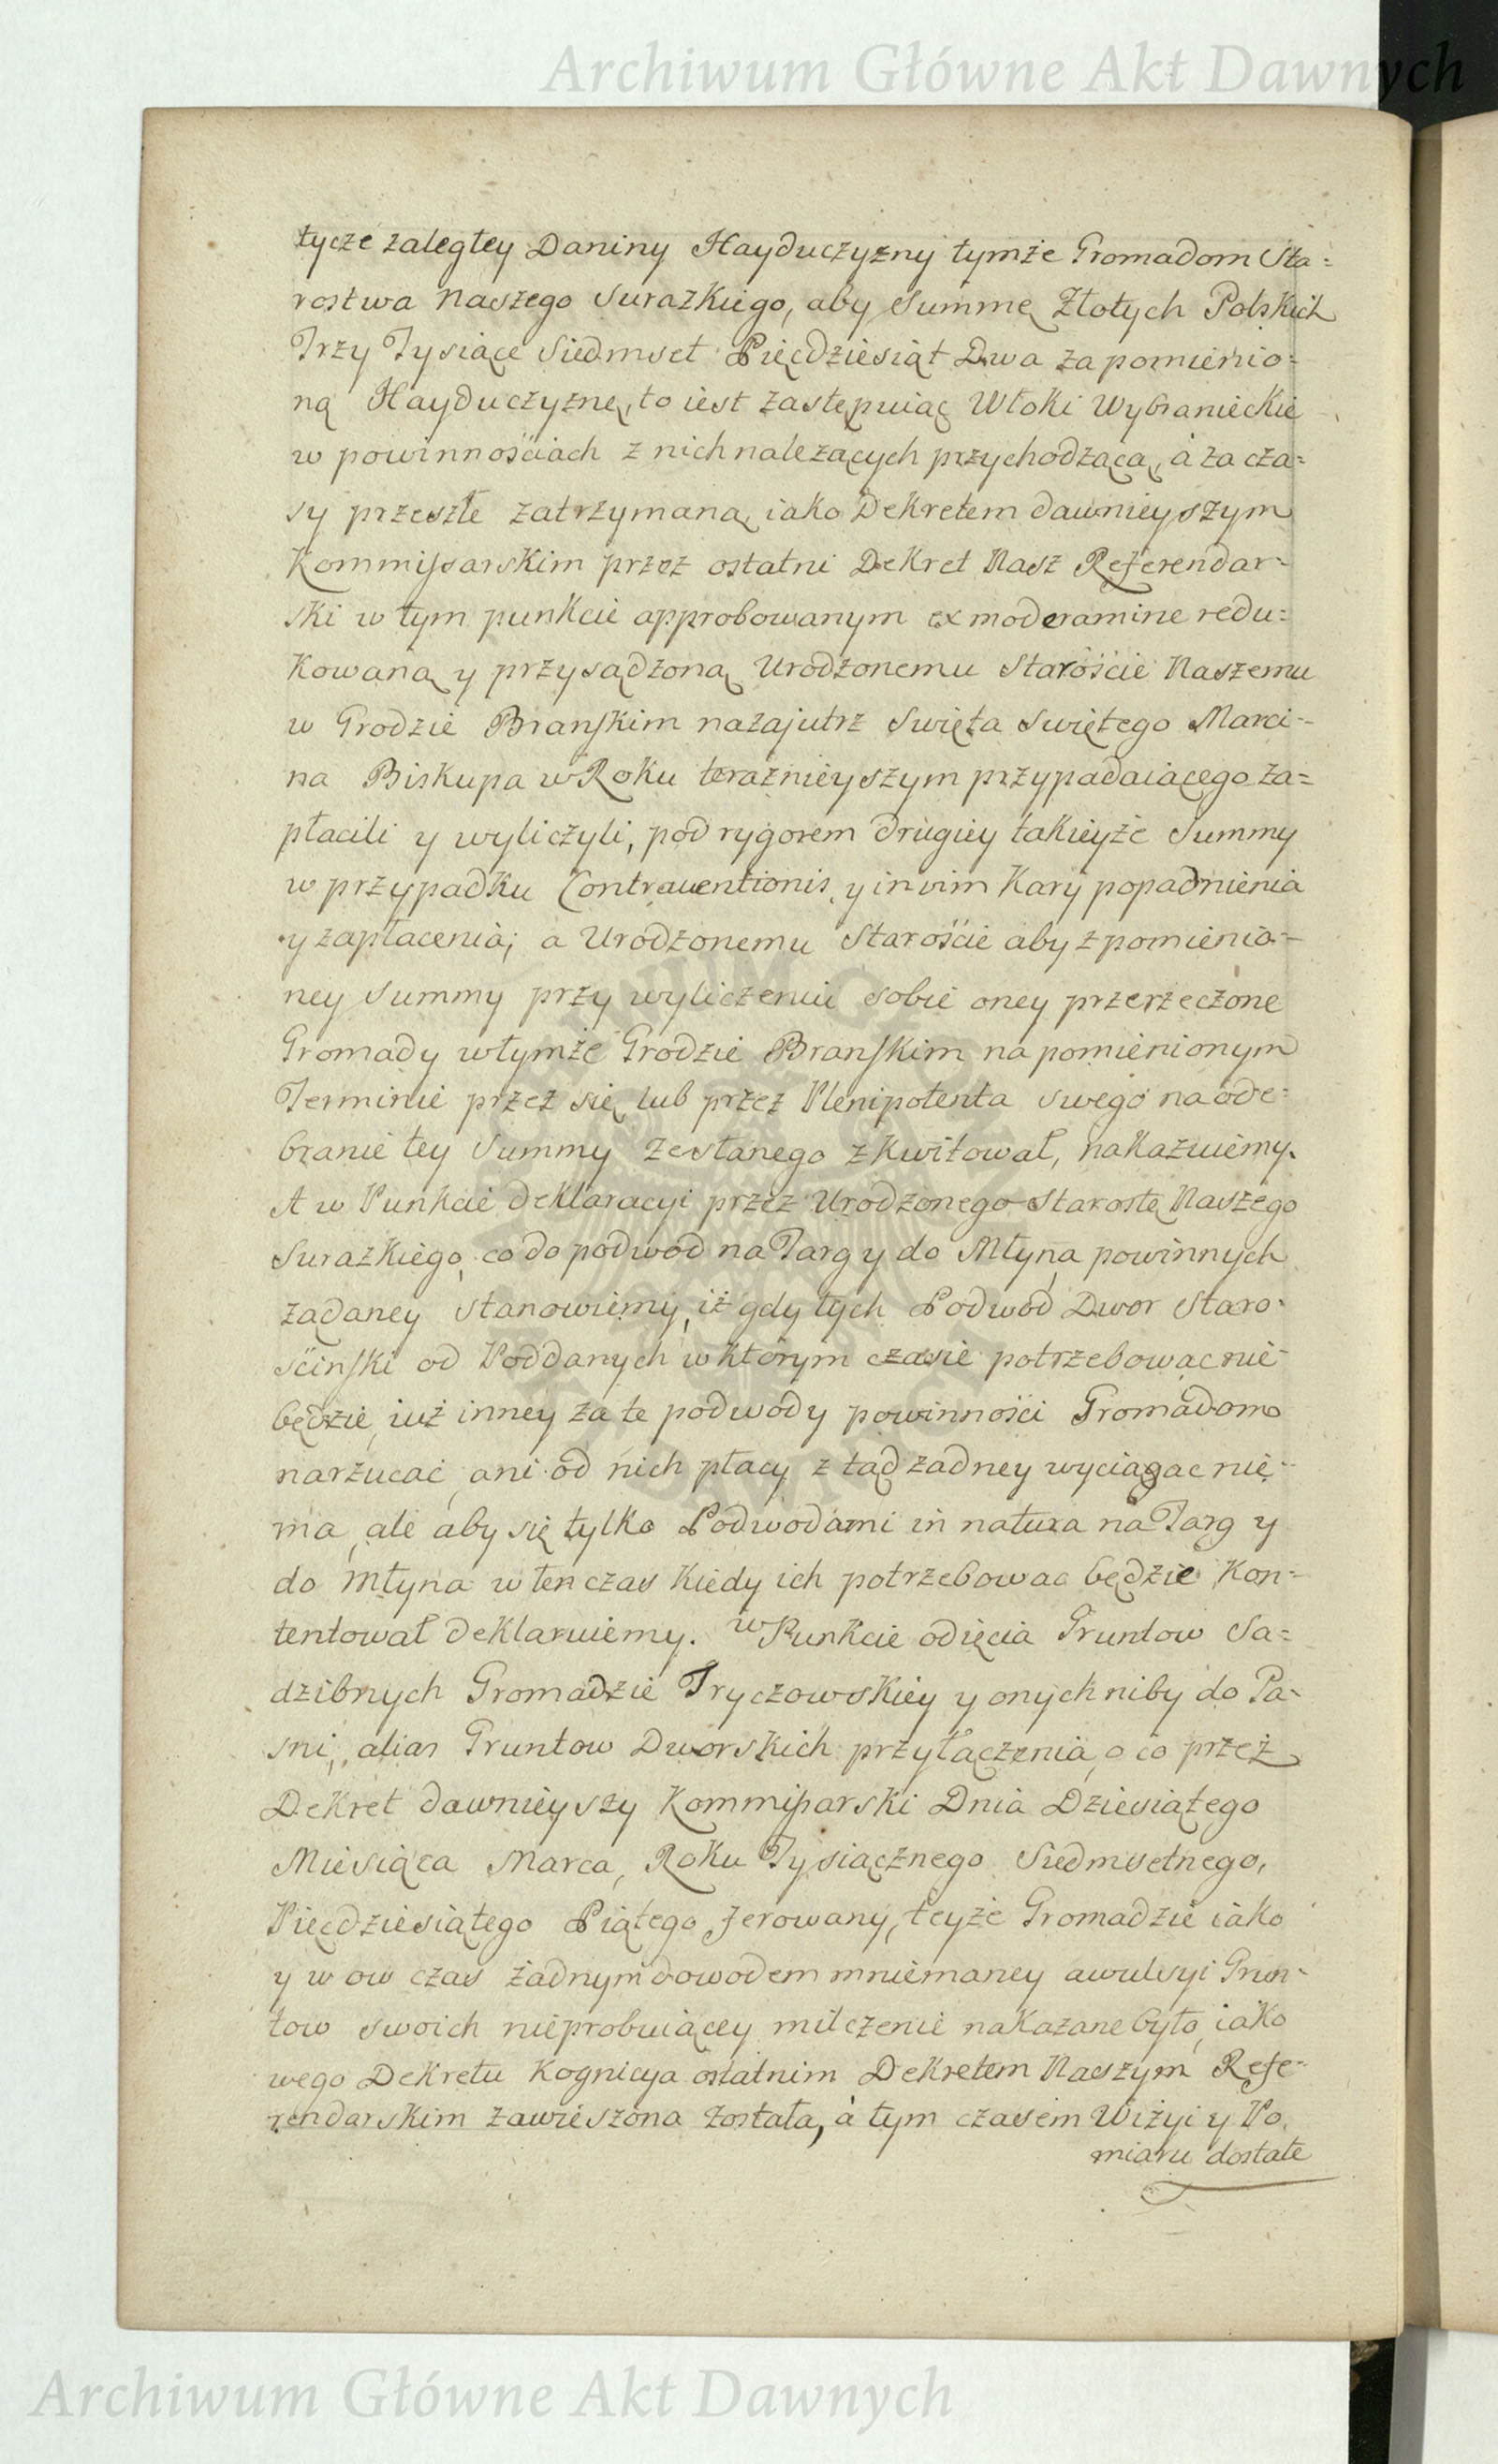 Archiwum Główne Akt Dawnych
tycze zaległey Daniny Hayduczyzny tymże Gromadom Sta=
rostwa Naszego Surazkiego, aby Summę Złotych Polskich
Trzy Tysiące Siedmset Pięcdziesiąt Dwa za pomienio=
ną Hayduczyznę, to iest zastępuiąc Włoki Wybranieckie
w powinnościach z nich należących przychodzącą, à za cza=
sy przeszłe zatrzymaną, iako Dekretem dawnieyszym
Kommissarskim przez ostatni Dekret Nasz Referendar=
ski w tym punkcie approbowanym ex moderamine redu=
kowaną y przysądzoną Urodzonemu Starościé Naszemu
w Grodzie Branskim nazajutrz Swięta Swiętego Marci=
na Biskupa w Roku teraznieyszym przypadaiącego za=
płacili y wyliczyli, pod rygorem drugiey takieyże Summy
w przypadku Contraventionis, y in vim Kary popadnienia
y zapłacenia; a Urodzonemu Starościé aby z pomienio=
ney Summy przy wyliczeniu sobie oney przerzeczone
Gromady w tymże Grodzie Branskim na pomienionym
Terminie przez się lub przez Plenipotenta swego na ode=
branie tey Summy zesłanego zkwitował, nakazuiemy.
A w Punkcie deklaracyi przez Urodzonego Starostę Naszego
Surazkiego, co do podwod na Targ y do Młyna powinnych
żądaney stanowiemy, iż gdy tych Podwod Dwor Staro=
ścinski od Poddanych w którym czasie potrzebowac nie
będzie, iuż inney za te podwody powinności Gromadom
narzucać, ani od nich płacy z tąd żadney wyciągac nie
ma, ale aby się tylko Podwodami in natura na Targ y
do Młyna w ten czas kiedy ich potrzebowac będzie kon=
tentował deklaruiemy. w Punkcie odięcia Gruntow Sa=
dzibnych Gromadzie Tryczowskiey y onych niby do Pa=
sni, alias Gruntow Dworskich przyłączenia, o co przez
Dekret dawnieyszy Kommissarski Dnia Dziesiątego
Miesiąca Marca, Roku Tysiącznego Siedmsetnego,
Pięcdziesiątego Piątego ferowany, teyże Gromadzie iako
y w ow czas żadnym dowodem mniemaney awulsyi Grun=
tow swoich nieprobuiącey milczenie nakazane było, iako
wego Dekretu Kognicya ostatnim Dekretem Naszym Refe=
rendarskim zawieszona została, à tym czasem Wizyi y Po
miaru dostate
Archiwum Główne Akt Dawnych